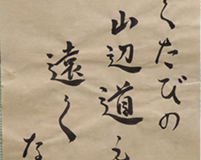 くたびの
山辺道を
遠くな